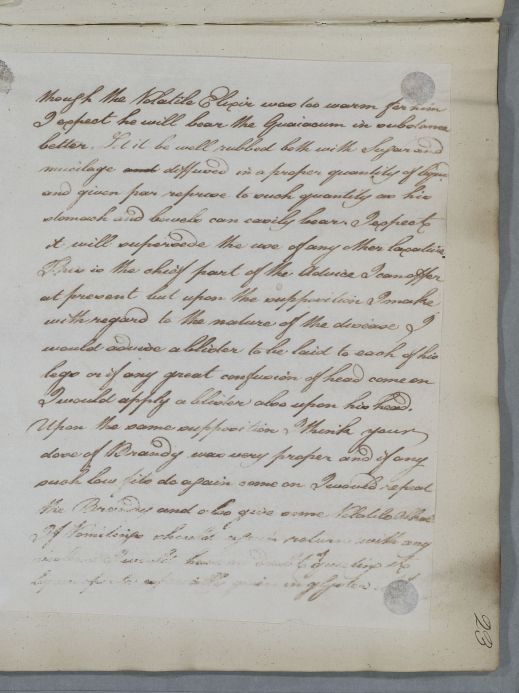 though the Volatile Elixir was too warm for him
I expect he will bear the Guaiacum in substance
better. Let it be well rubbed both with Sugar and
mucilage and diffused in a proper quantity of liquor
and given per reprise to such quantity as his
stomach and bowels can easily bear. I expect
it will supersede the use of any other laxative.
This is the chief part of the Advice I can offer
at present but upon the supposition I make
with regard to the nature of the disease I
would advise a blister to be laid to each of his
legs or if any great confusion of head come on
I would apply a blister also upon his head.
Upon the same supposition I think your
dose of Brandy was very proper and if any
such low fits do again come on I would repeat
the Brandy and also give some Volatile
If Vomitings should again return with any
I would have no doubt
again
23